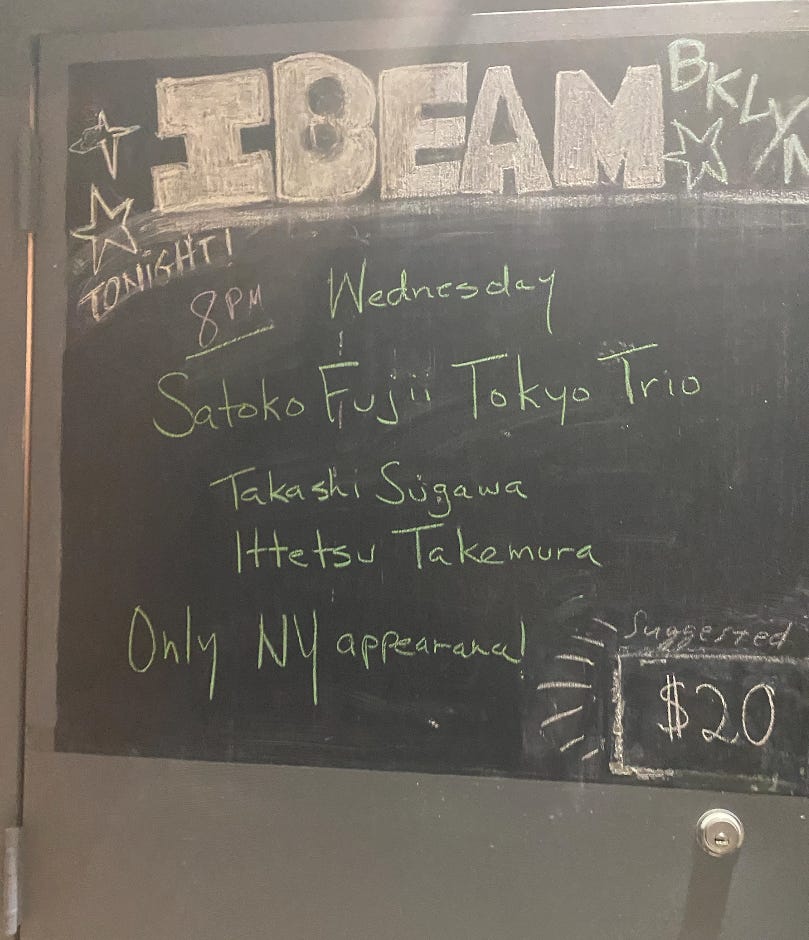 IBEAM BKLYN
TONIGHT!
8PM Wednesday
Satoko Fujii Tokyo Trio
Takashi Sugawa
Ittetsu Takemura
Only NY appearance!
Suggested
$20